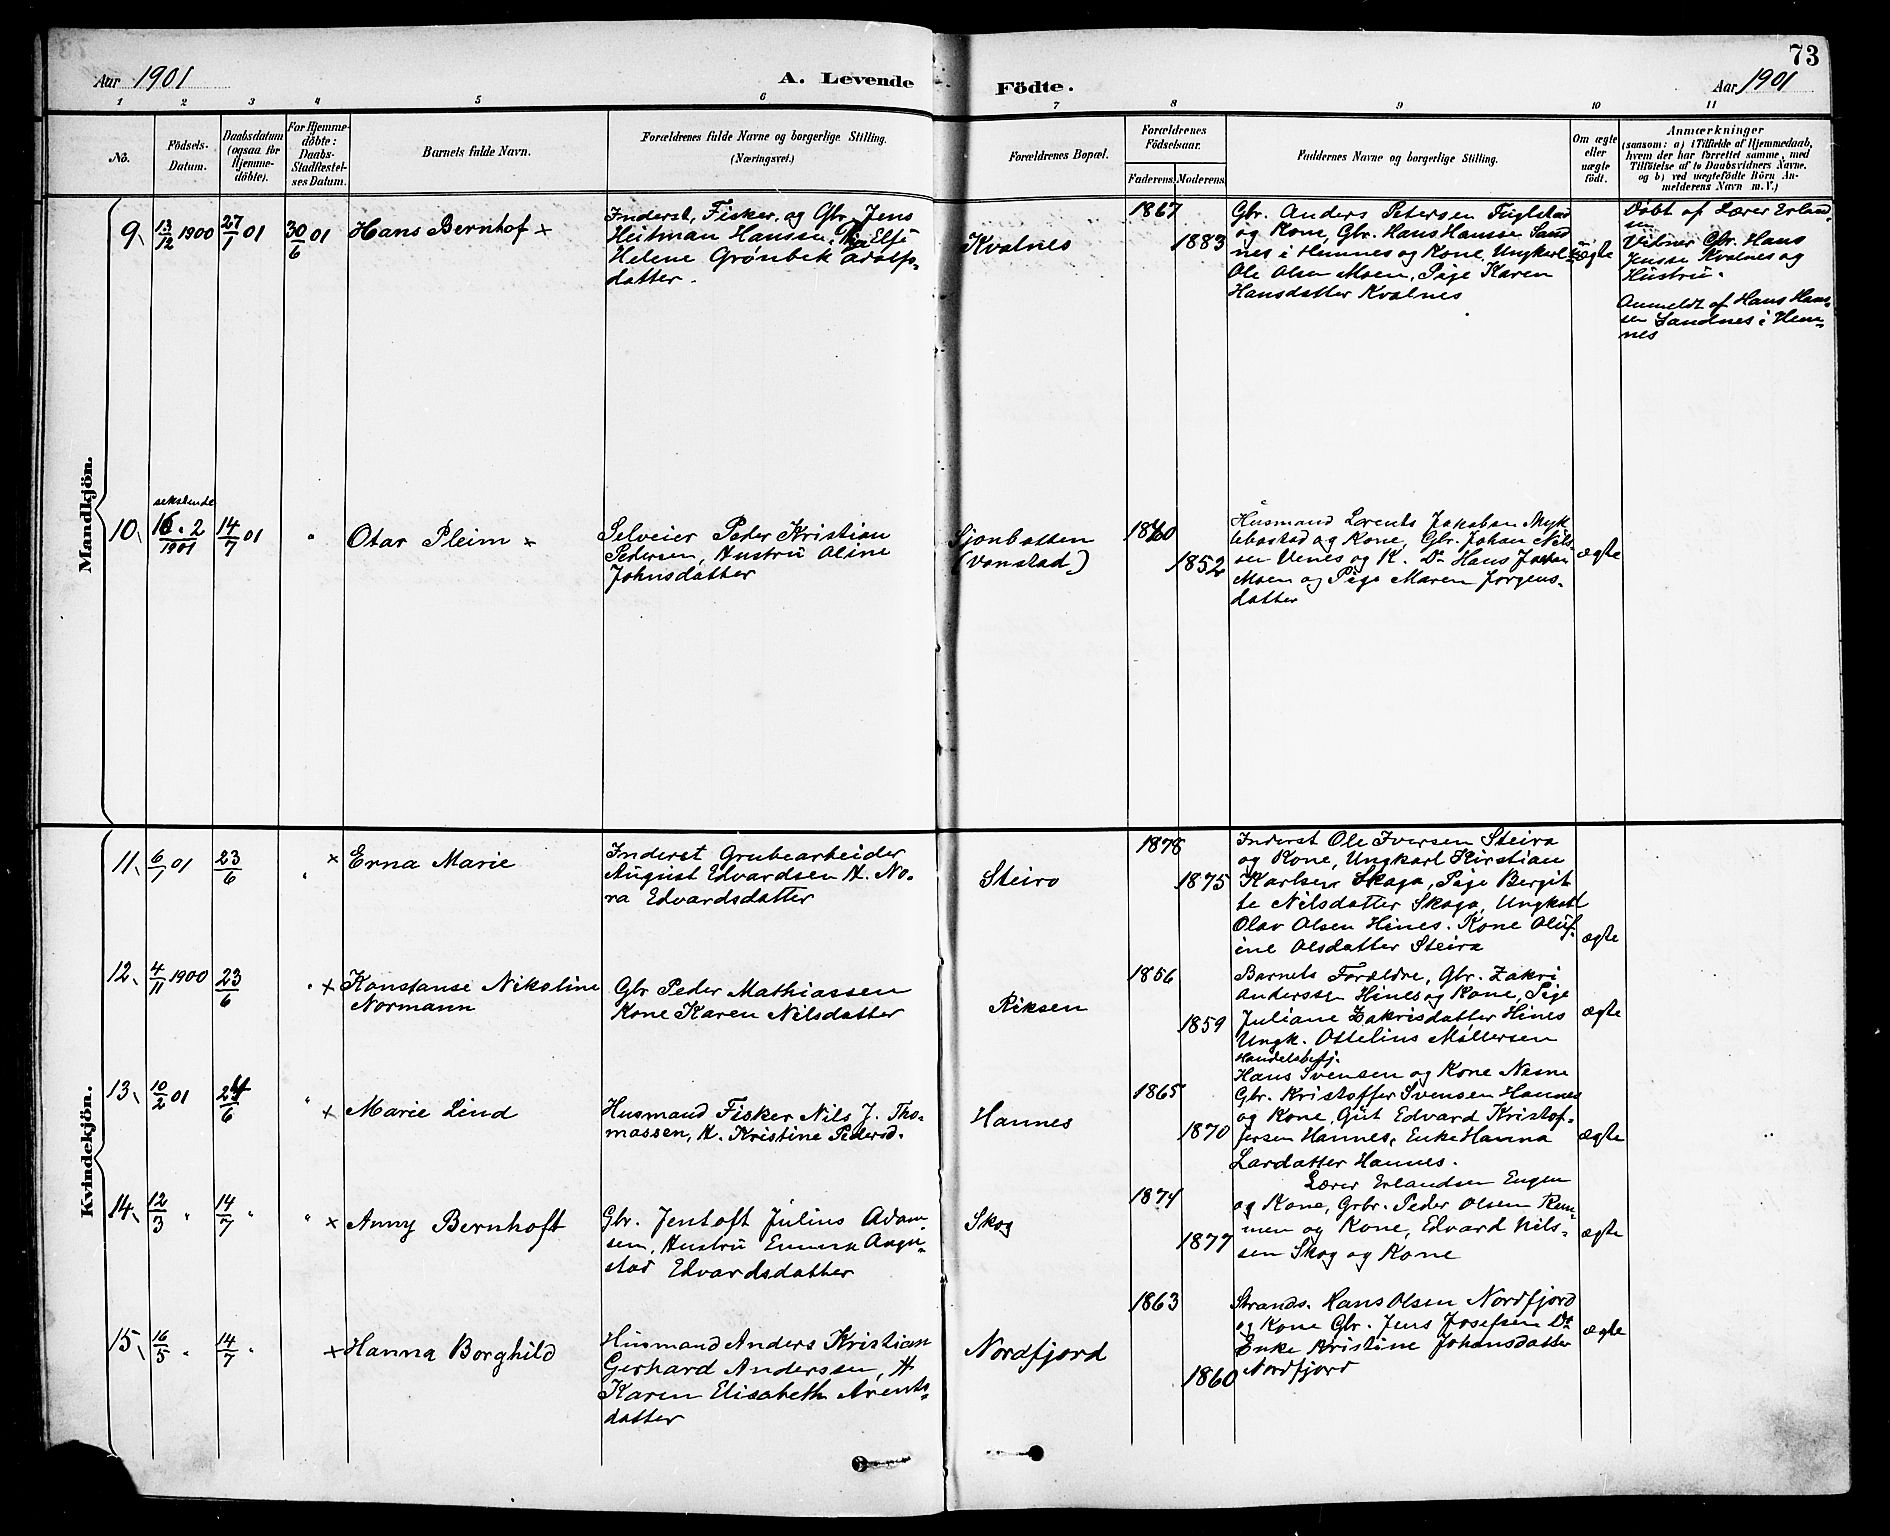 73
Aar 1901
A. Levende Födte.
Aar 1901
1 2 3 4 5 6 7 8 9 10 11
No.
Födsels-
Datum.
Daabsdatum
(ogsaa for
Hjemme-
döbte).
For Hjemme-
döbte:
Daabs-
Stadfestel-
ses Datum.
Barnets fulde Navn.
Forældrenes fulde Navne og borgerlige Stilling.
(Næringsvei.)
Forældrenes Bopæl.
Forældrenes
Födselsaar.
Faderens. Moderens.
Faddernes Navne og borgerlige Stilling.
Om ægte
eller
uægte
födt.
Anmærkninger
(saasom: a) i Tilfælde af Hjemmedaab,
hvem der har forrettet samme, med
Tilföielse af to Daabsvidners Navne.
og b) ved uægtefödte Börn An-
melderens Navn m. V.)
Mandkjön.
9. 13/12 1900 27/1 01 30/6 01
Hans Bernhof x
Inderst, Fisker, og Gbr Jens
Heitman Hanssen, Pige Elfi
Helene Grønbek Adolfs-
datter.
Kvalnes
1867
1883
Gbr. Anders Petersen Fuglstad
og Kone, Gbr. Hans Hansse Sand
nes i Hemnes og Kone, Ungkarl
Ole Olsen Moen, Pige Karen
Hansdatter Kvalnes
uægte
Døbt af Lærer Erland-
sen
Vidner Gbr. Hans
Jensse Kvalnes og
Hustru.
Anmeldt af Hans Hans-
sen Sandnes i Hem-
nes
10. sekstende
16. 2
1901
14/7 01 "
Otar Pleim x
Selveier Peder Kristian
Pedersen, Hustru Oline
Johnsdatter
Sjonbotten
(Vonstad)
1860
1852
Husmand Lorents Jakobsn Myk
lebostad og Kone, Gbr. Johan Nils-
sen Venes og K. Dr. Hans Johan
Moen og Pige Maren Jørgens-
datter
ægte
Kvindekjön.
11. 6/1 01 23/6 "
x Erna Marie
Inderst Grubearbeider
August Edvardsen H. No-
ra Edvardsdatter
Steiro
1878
1875
Inderst Ole Iversen Steira
og Kone, Ungkarl Kirstian
Karlsen Skaga, Pige Bergit
te Nilsdatter Skaga, Ungkarl
Olav Olsen Hines. Kone Oluf-
ine Olsdatter Steira
ægte
12. 4/11 1900 23/6 "
x Konstanse Nikoline
Normann
Gbr Peder Mathiassen
Kone Karen Nilsdatter
Riksen
1856
1859
Barnets Forældre, Gbr. Zakri
Anderssen Hines og Kone, Pige
Juliane Zakrisdatter Hines
Ungk. Ottelius Møllersen
ægte
13. 10/2 01 24/6 "
x Marie Lind
Husmand Fisker Nils J. Tho-
massen, H. Kristine Pedersd.
Hannes
1865
1870
Handelsbetj.
Hans Svensen og Kone Nesne
Gbr. Kristoffer Svensen Hannes
og Kone, Gut Edvard Kristof-
fersen Hannes, Enke Hanna
Larsdatter Hannes.
ægte
14. 12/3 " 14/7 " "
x Anny Bernhoft
Gbr. Jentoft Julius Adam-
sen, Hustru Emma Augu-
sta Edvardsdatter
Skog
1874
1877
Lærer Erlandsen Engen
og Kone, Grbr. Peder Olsen Rem-
men og Kone, Edvard Nils-
sen Skog og Kone
ægte
15. 16/5 " 14/7 "
x Hanna Borghild
Husmand Anders Kristian
Gerhard Anderssen, H
Karen Elisabeth Arents-
datter
Nordfjord
1863
1860
Strands. Hans Olsen Nordfjord
og Kone Gbr. Jens Josefsen Do
Enke Kristine Johansdatter
Nordfjord
ægte